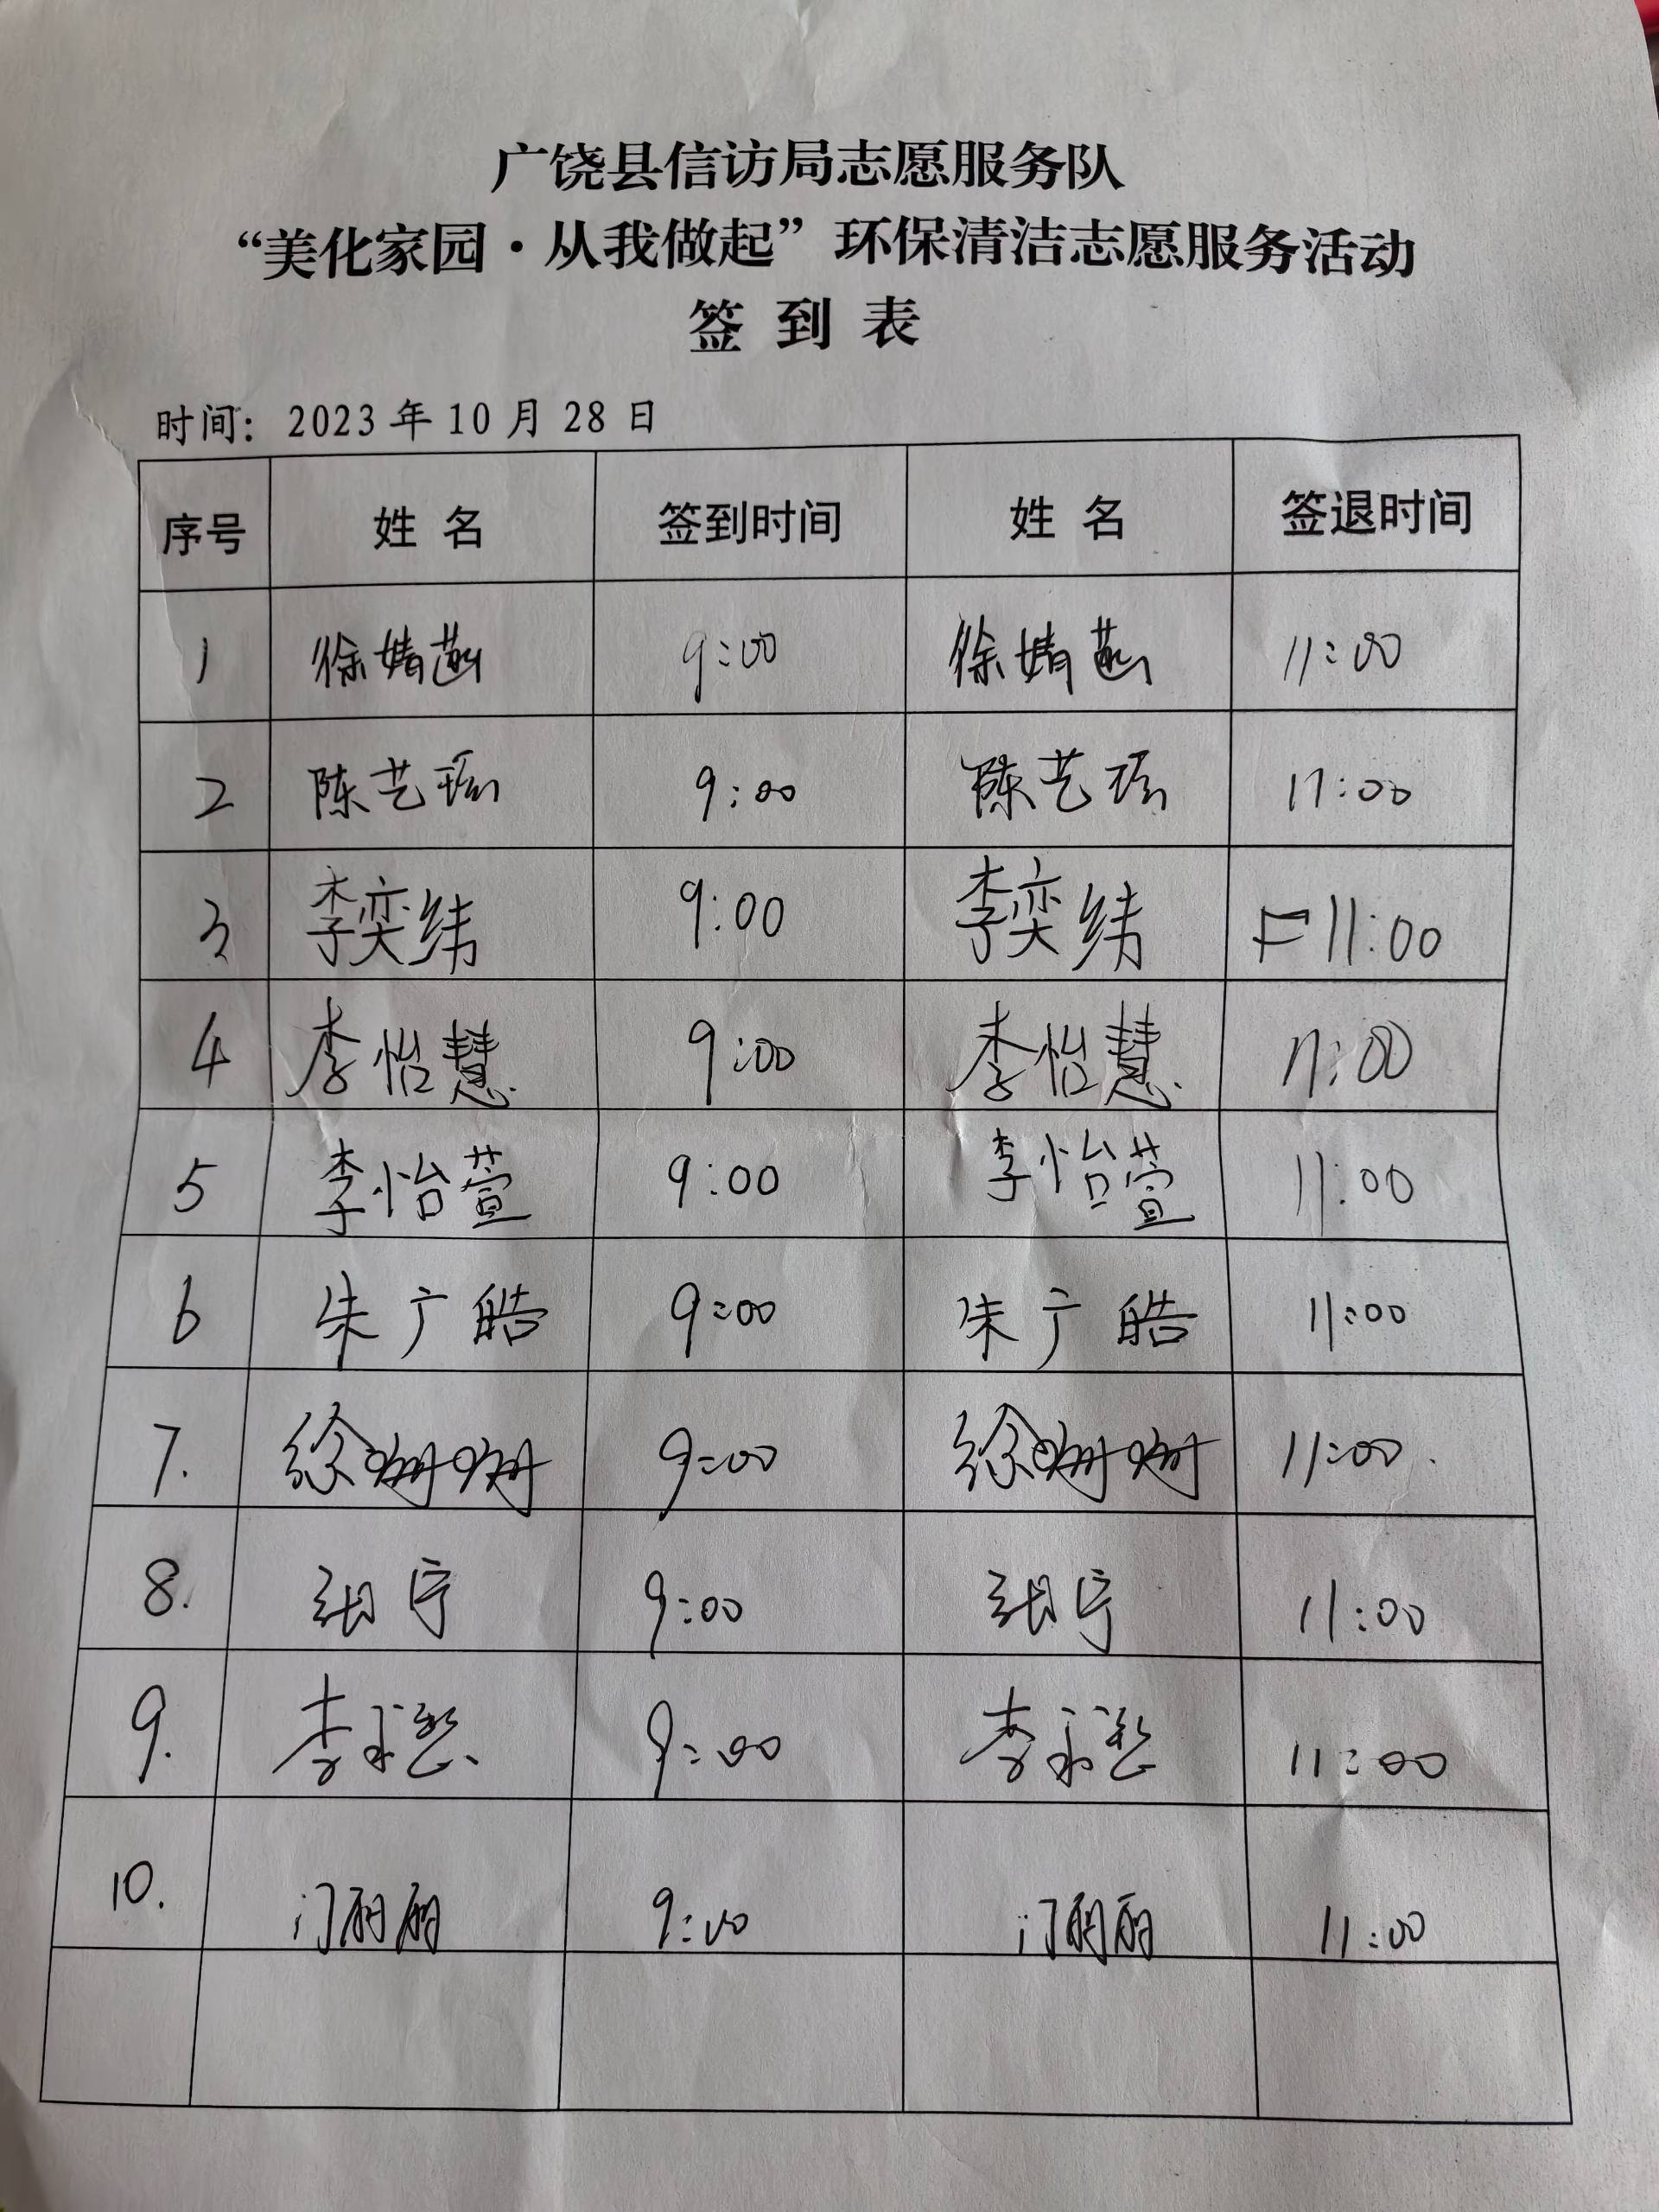 广饶县信访局志愿服务队
“美化家园·从我做起”环保清洁志愿服务活动
签 到 表
时间： 2023 年 10 月 28 日
序号 姓 名 签到时间 姓 名 签退时间
1 徐婧菡 9:00 徐婧菡 11:00
2 陈艺瑶 9:00 陈艺瑶 11:00
3 李奕纬 9:00 李奕纬 11:00
4 李怡慧 9:00 李怡慧 11:00
5 李怡萱 9:00 李怡萱 11:00
6 朱广皓 9:00 朱广皓 11:00
7. 徐珊珊 9:00 徐珊珊 11:00.
8. 张宇 9:00 张宇 11:00
9. 李 9:00 李 11:00
10. 门丽丽 9:00 门丽丽 11:00